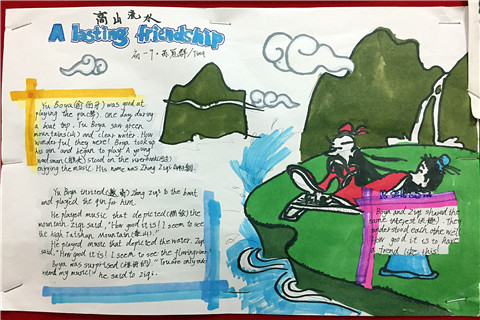 高山流水
A lasting friendship
初一9·
Yu Boya (俞伯牙) was good at
playing the One day during
a boat trip, Yu Boya saw green
mountains and clear water. How
wonderful they were! Boya took up
his qin and began to play. A young
woodsman stood on the
enjoying the music. His name was Zhong Ziqi
Yu Boya invited Zhong Ziqi to the boat
and played the qin for him.
He played music that depicted the
mountain. Ziqi said, "How good it is! I seem to see
the high Taishan Mountain
He played music that depicted the water. Ziqi
said, "How good it is! I seem to see the flowing
Boya was surprised "You are only
read my music!" he said to Ziqi.
Boya and Ziqi shared the
same interest They
understood each other well
How good it is to have
a friend like this!